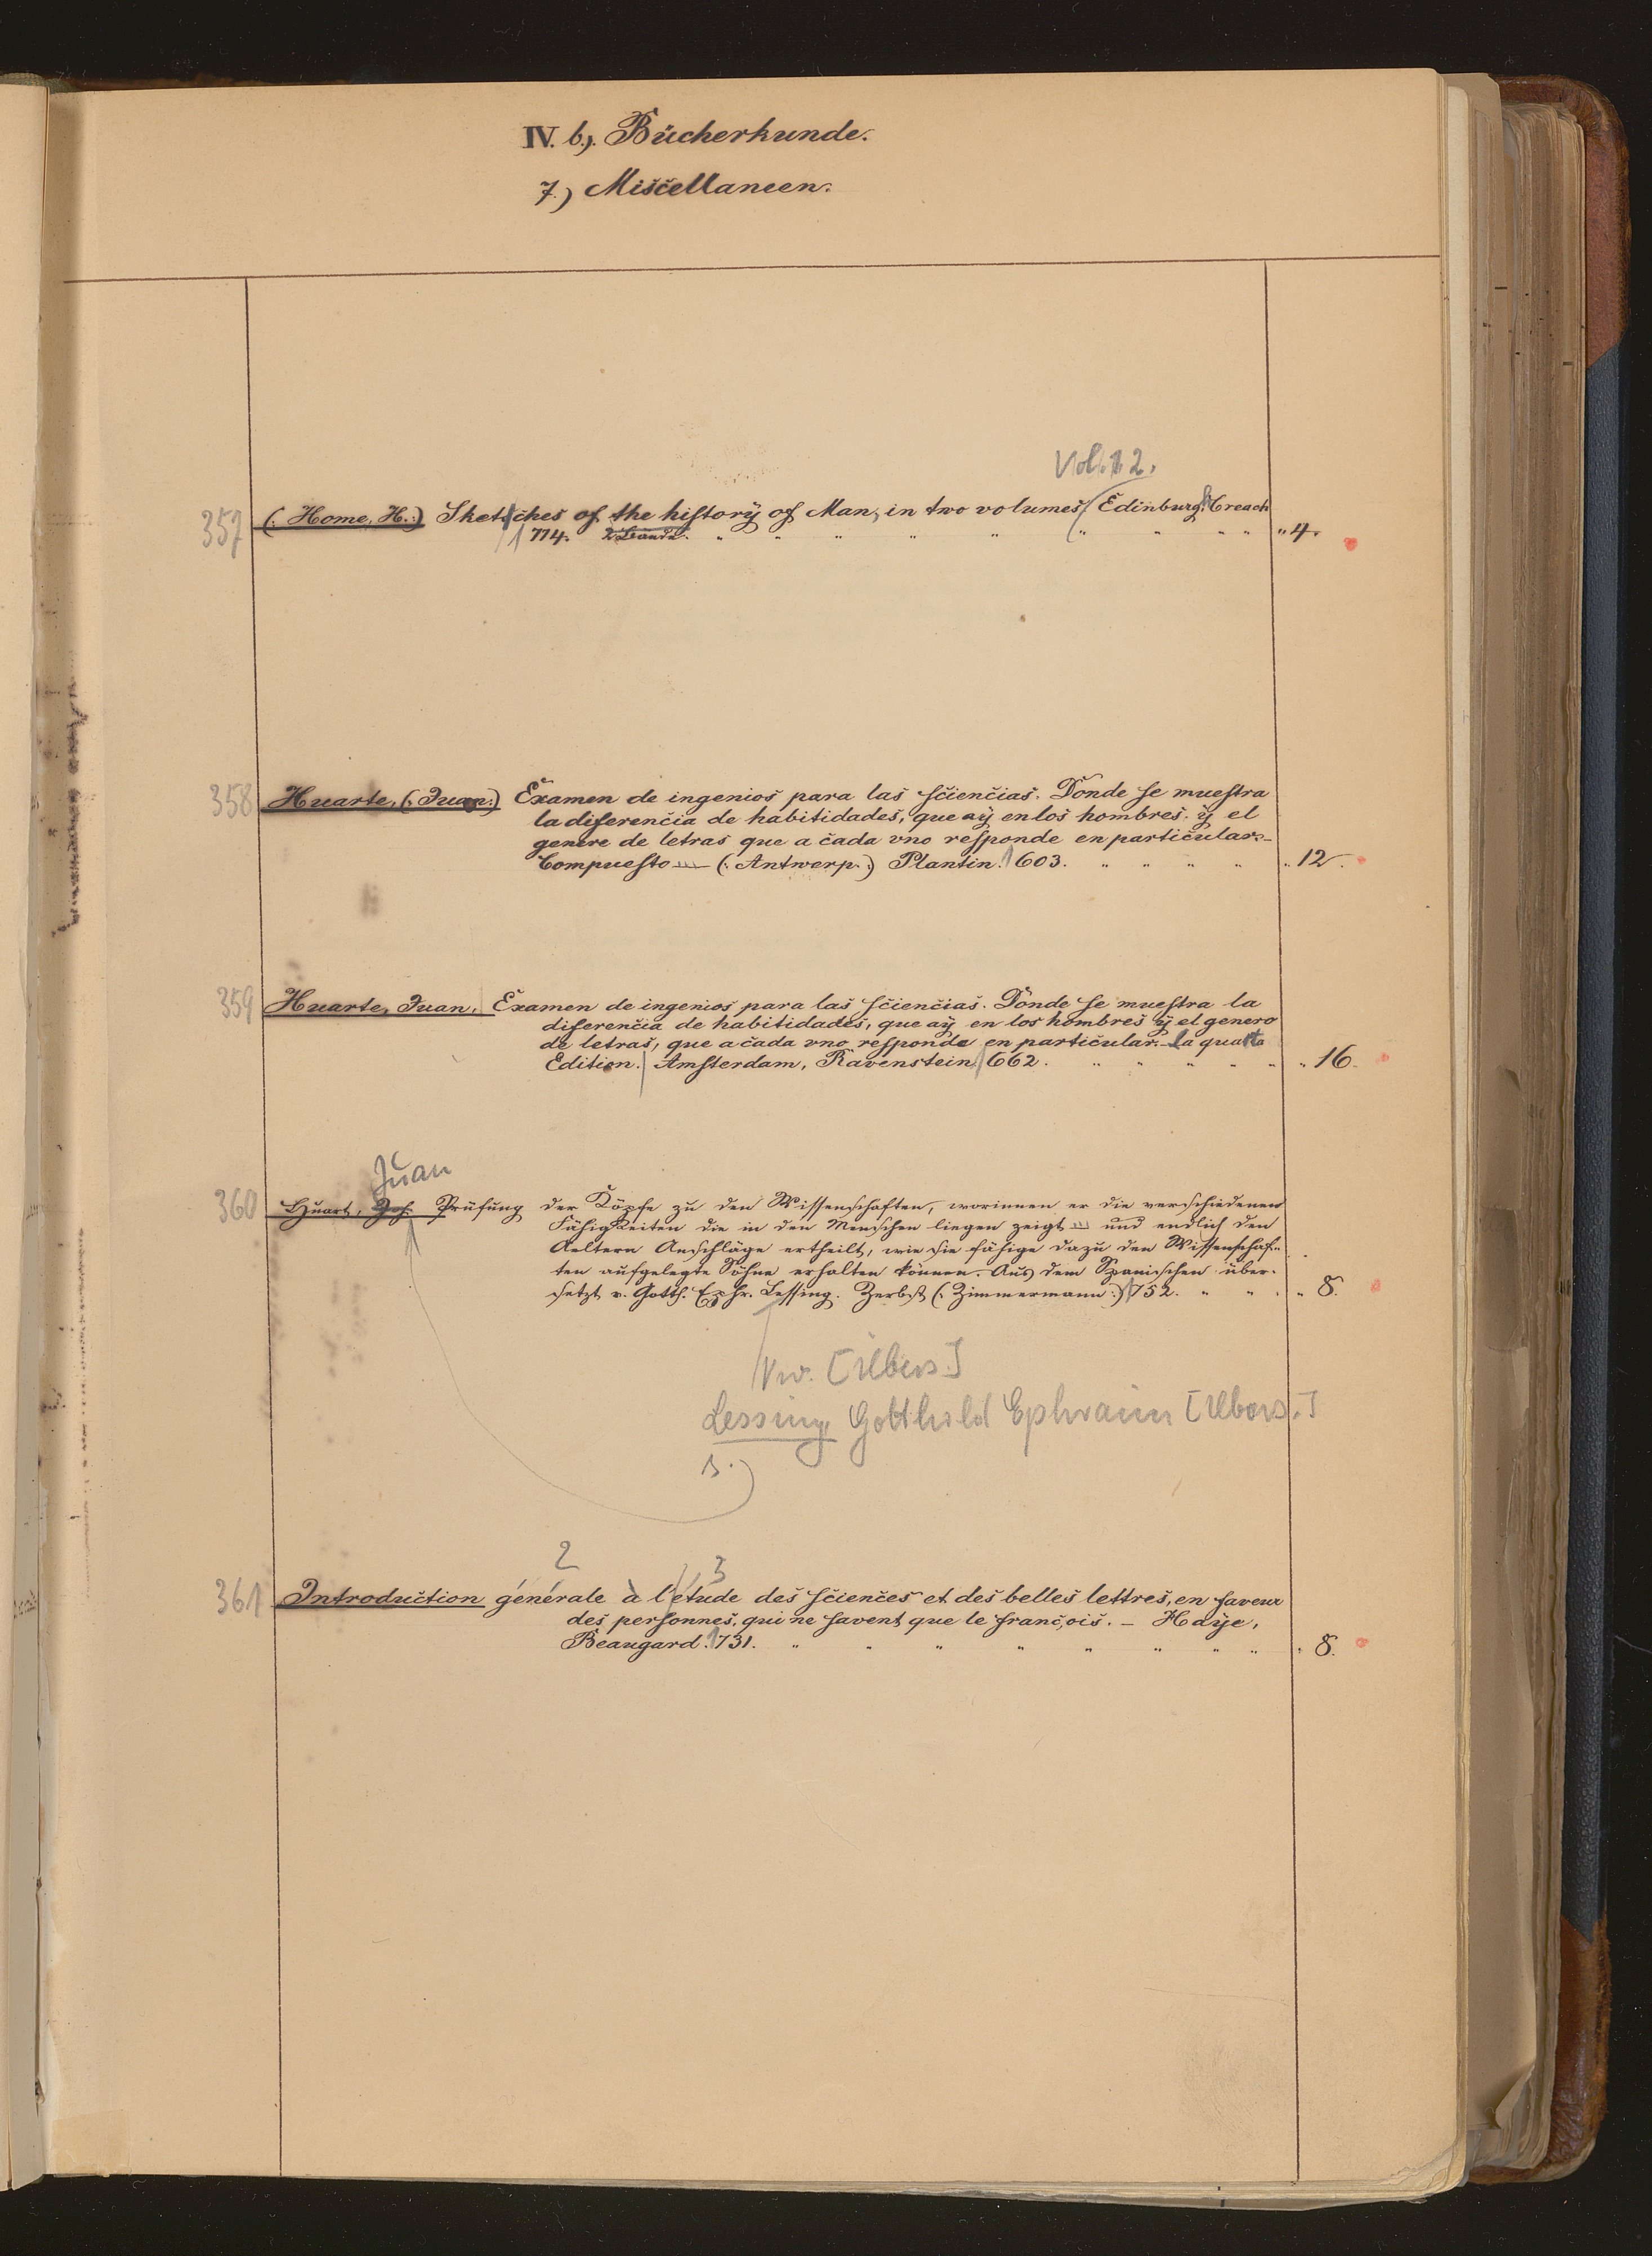 IV. b.). Bücherkunde.
7.) Miscellaneen.
Vol. 1. 2.
357 (: Home, H. :) Sketches of the history of Man, in two volumes Edinburgh. Creech
1774. 2 Bände. " " " " " " " " " " 4.
358 Huarte, (: Juan :) Examen de ingenios para las sciencias. Donde se muestra
la diferencia de habitidades, que ay en los hombres. y el
genere de letras que a cada vno responde en particular. –
Compuesto — (: Antwerp. :) Plantin. 1603. " " " " " 12.
359 Huarte, Juan. Examen de ingenios para las sciencias. Donde se muestra la
diferencia de habitidades, que ay en los hombres y el genero
de letras, que a cada vno responde en particular. – La quarta
Edition. Amsterdam, Ravenstein, 1662. " " " " " " 16.
Juan
360 Huart, Joh. Prüfung der Köpfe zu den Wissenschaften, worinnen er die verschiedenen
Fähigkeiten die in den Menschen liegen zeigt — und endlich den
Aeltern Anschläge ertheilt, wie sie fähige dazu den Wissenschaf-
ten aufgelegte Söhne erhalten können. Aus dem Spanischen über-
setzt v. Gotth. Ephr. Lessing. Zerbst (: Zimmermann :) 1752. " " " " 8.
Vw. [Übers.]
Lessing, Gotthold Ephraim [Übers.]
s.
2 3
361 Introduction générale à l'étude des sciences et des belles lettres, en faveur
des personnes, qui ne savent que le françois. – Haye,
Beaugard. 1731. " " " " " " " " " 8.